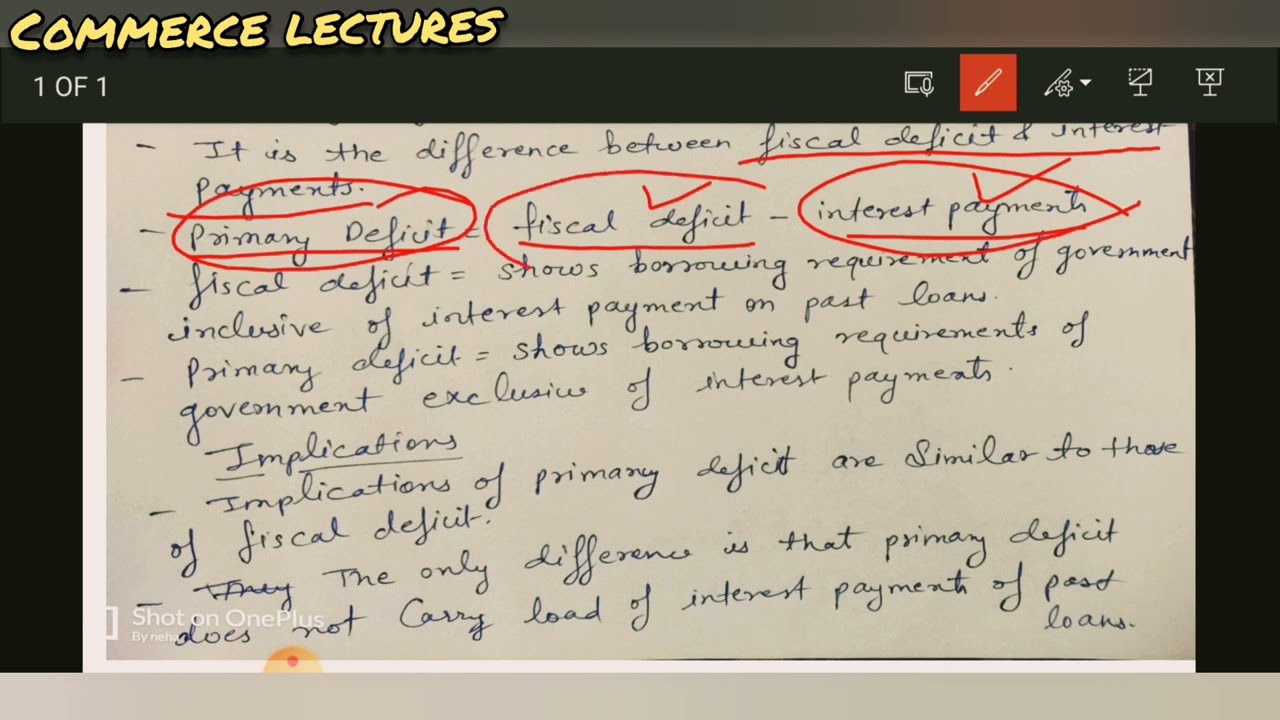 COMMERCE LECTURES
1 OF 1
- It is the difference between fiscal deficit & interest
payments.
- Primary Deficit = fiscal deficit - interest payments
- fiscal deficit = shows borrowing requirement of government
inclusive of interest payment on past loans.
- Primary deficit = shows borrowing requirements of
government exclusive of interest payments.
Implications
- Implications of primary deficit are similar to those
of fiscal deficit.
- The only difference is that primary deficit
does not carry load of interest payments of past
loans.
Shot on OnePlus
By neha